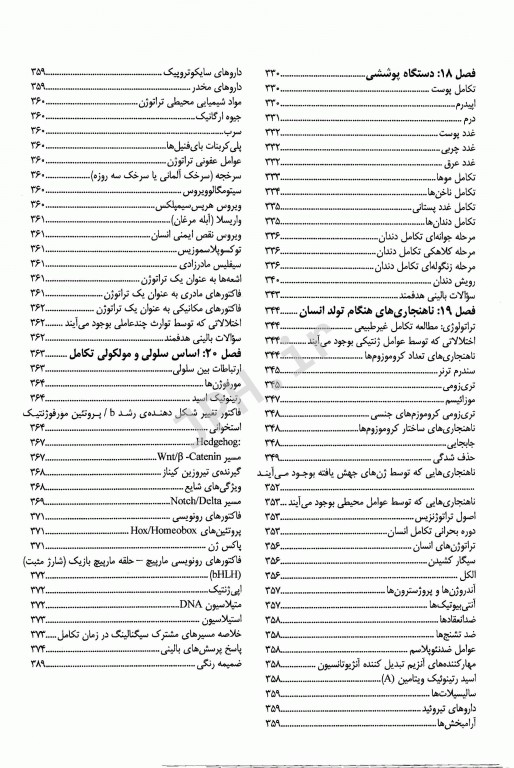 فصل ۱۸: دستگاه پوششی ..... ۳۳۰
تکامل پوست ..... ۳۳۰
اپیدرم ..... ۳۳۰
درم ..... ۳۳۱
غدد پوست ..... ۳۳۲
غدد چربی ..... ۳۳۲
غدد عرق ..... ۳۳۲
تکامل موها ..... ۳۳۳
تکامل ناخن‌ها ..... ۳۳۴
تکامل غدد پستانی ..... ۳۳۵
تکامل دندان‌ها ..... ۳۳۵
مرحله جوانه‌ای تکامل دندان ..... ۳۳۶
مرحله کلاهکی تکامل دندان ..... ۳۳۶
مرحله زنگوله‌ای تکامل دندان ..... ۳۳۶
رویش دندان ..... ۳۴۰
سؤالات بالینی هدفمند ..... ۳۴۳
فصل ۱۹: ناهنجاری‌های هنگام تولد انسان ..... ۳۴۴
تراتولوژی: مطالعه تکامل غیرطبیعی ..... ۳۴۴
اختلالاتی که توسط عوامل ژنتیکی بوجود می‌آیند ..... ۳۴۴
ناهنجاری‌های تعداد کروموزوم‌ها ..... ۳۴۴
سندرم ترنر ..... ۳۴۵
تری‌زومی ..... ۳۴۵
موزائیسم ..... ۳۴۷
تری‌زومی کروموزم‌های جنسی ..... ۳۴۸
ناهنجاری‌های ساختار کروموزوم‌ها ..... ۳۴۸
جابجایی ..... ۳۴۸
حذف شدگی ..... ۳۴۹
ناهنجاری‌هایی که توسط ژن‌های جهش یافته بوجود می‌آیند
..... ۳۵۲
ناهنجاری‌هایی که توسط عوامل محیطی بوجود می‌آیند ..... ۳۵۳
اصول تراتوژنزیس ..... ۳۵۳
دوره بحرانی تکامل انسان ..... ۳۵۳
تراتوژن‌های انسان ..... ۳۵۶
سیگار کشیدن ..... ۳۵۶
الکل ..... ۳۵۶
آندروژن‌ها و پروژسترون‌ها ..... ۳۵۷
آنتی‌بیوتیک‌ها ..... ۳۵۷
ضدانعقادها ..... ۳۵۸
ضد تشنج‌ها ..... ۳۵۸
عوامل ضدنئوپلاسم ..... ۳۵۸
مهارکننده‌های آنزیم تبدیل کننده آنژیوتانسیون ..... ۳۵۸
اسید رتینوئیک ویتامین (A) ..... ۳۵۸
سالیسیلات‌ها ..... ۳۵۹
داروهای تیروئید ..... ۳۵۹
آرامبخش‌ها ..... ۳۵۹
داروهای سایکوتروپیک ..... ۳۵۹
داروهای مخدر ..... ۳۵۹
مواد شیمیایی محیطی تراتوژن ..... ۳۶۰
جیوه ارگانیک ..... ۳۶۰
سرب ..... ۳۶۰
پلی‌کربنات بای‌فنیل‌ها ..... ۳۶۰
عوامل عفونی تراتوژن ..... ۳۶۰
سرخجه (سرخک آلمانی یا سرخک سه روزه) ..... ۳۶۰
سیتومگالوویروس ..... ۳۶۰
ویروس هرپس‌سیمپلکس ..... ۳۶۰
واریسلا (آبله مرغان) ..... ۳۶۱
ویروس نقص ایمنی انسان ..... ۳۶۱
توکسوپلاسموزیس ..... ۳۶۱
سیفلیس مادرزادی ..... ۳۶۱
اشعه‌ها به عنوان یک تراتوژن ..... ۳۶۱
فاکتورهای مادری به عنوان یک تراتوژن ..... ۳۶۱
فاکتورهای مکانیکی به عنوان یک تراتوژن ..... ۳۶۲
اختلالاتی که توسط توارث چندعاملی بوجود می‌آیند ..... ۳۶۲
سؤالات بالینی هدفمند ..... ۳۶۲
فصل ۲۰: اساس سلولی و مولکولی تکامل ..... ۳۶۳
ارتباطات بین سلولی ..... ۳۶۳
مورفوژن‌ها ..... ۳۶۴
رتینوئیک اسید ..... ۳۶۴
فاکتور تغییر شکل دهنده‌ی رشد b / پروتئین مورفوژنتیک
استخوانی ..... ۳۶۴
Hedgehog: ..... ۳۶۷
مسیر Wnt/β -Catenin ..... ۳۶۷
گیرنده‌ی تیروزین کیناز ..... ۳۶۸
ویژگی‌های شایع ..... ۳۶۸
مسیر Notch/Delta ..... ۳۶۹
فاکتورهای رونویسی ..... ۳۷۱
پروتئین‌های Hox/Homeobox ..... ۳۷۱
پاکس ژن ..... ۳۷۱
فاکتورهای رونویسی مارپیچ – حلقه مارپیچ بازیک (شارژ مثبت)
(bHLH) ..... ۳۷۲
اپی‌ژنتیک ..... ۳۷۲
متیلاسیون DNA ..... ۳۷۲
استیلاسیون ..... ۳۷۳
خلاصه مسیرهای مشترک سیگنالینگ در زمان تکامل ..... ۳۷۳
پاسخ پرسش‌های بالینی ..... ۳۷۴
ضمیمه رنگی ..... ۳۸۹